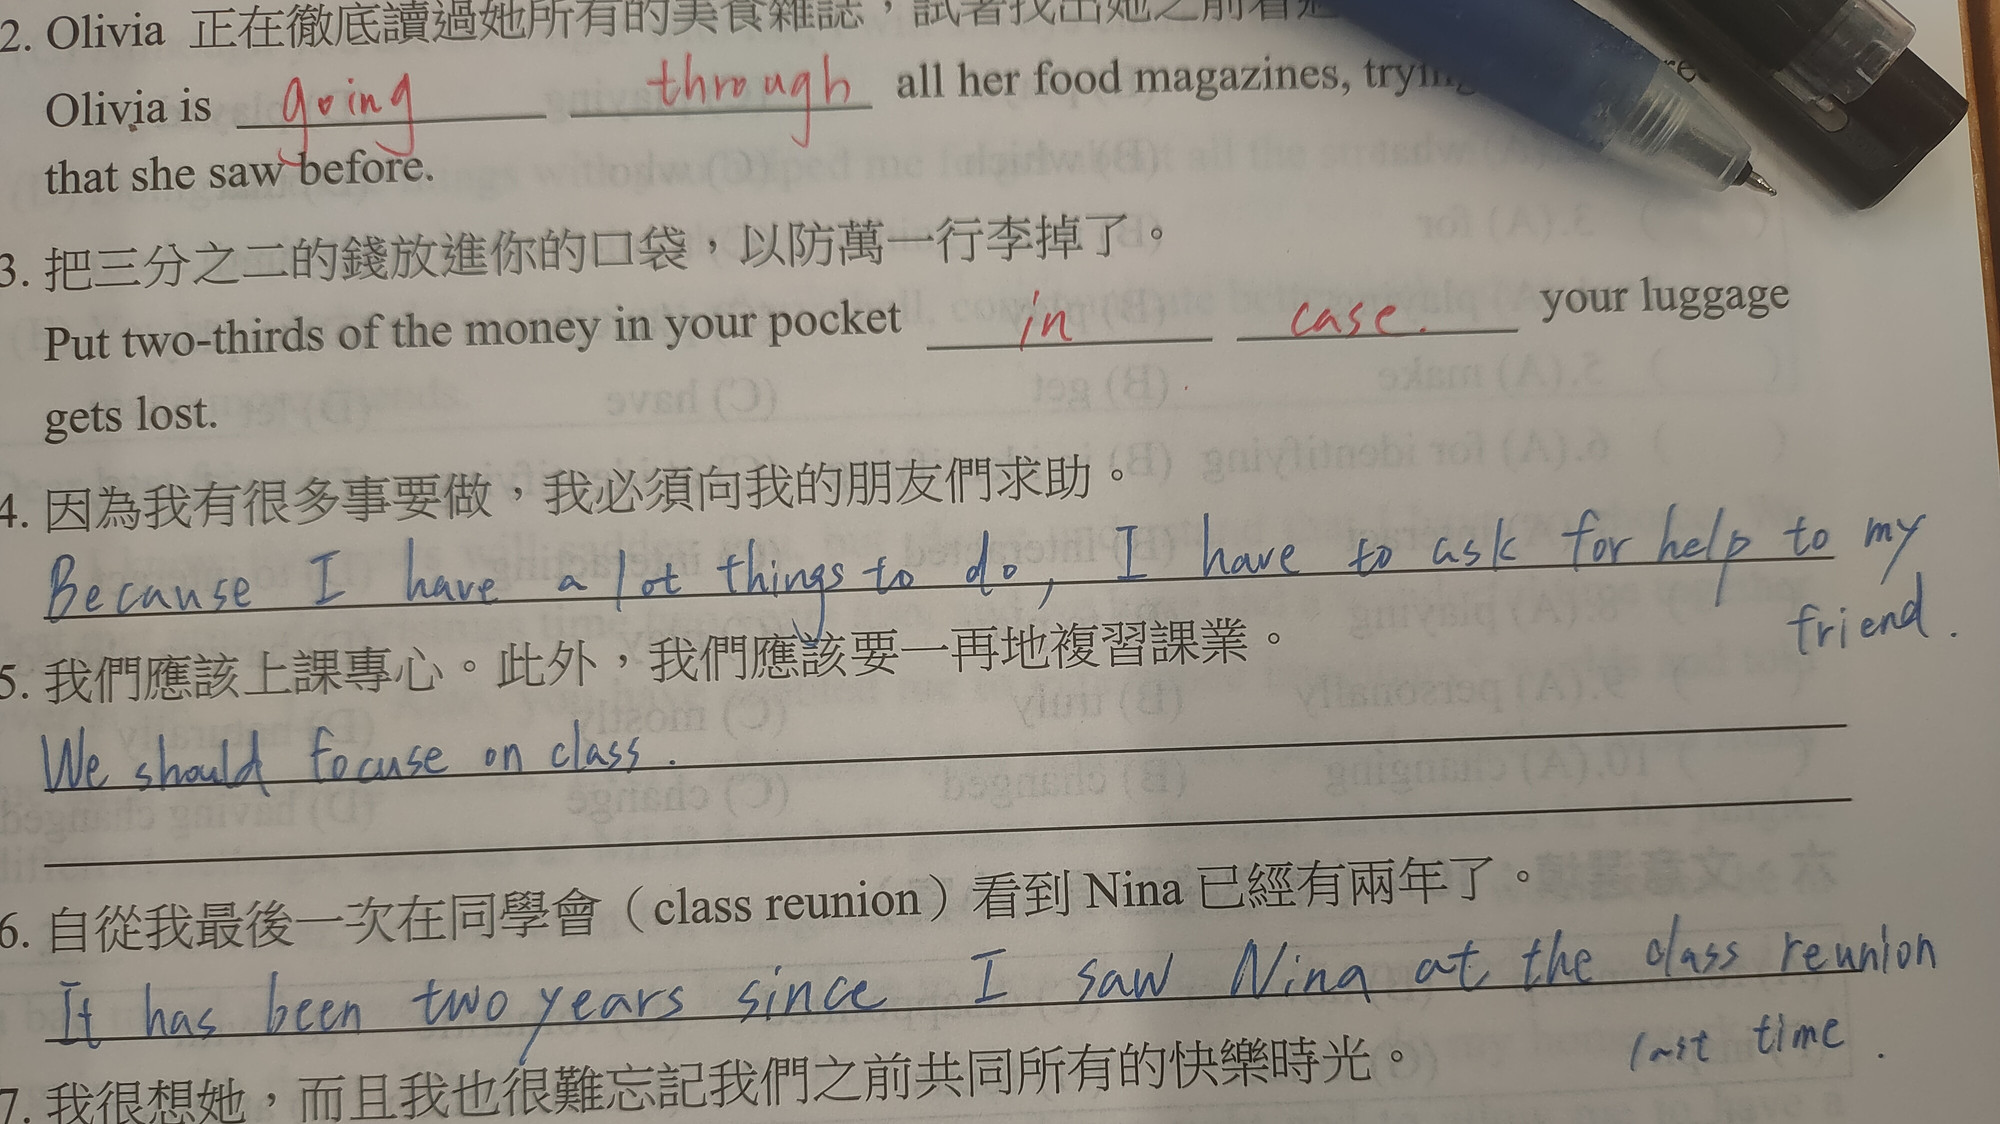 2. Olivia 正在徹底讀過她所有的美食雜誌，試著找出她之前看過
Olivia is going through all her food magazines, trying
that she saw before.
3. 把三分之二的錢放進你的口袋，以防萬一行李掉了。
Put two-thirds of the money in your pocket in case. your luggage
gets lost.
4. 因為我有很多事要做，我必須向我的朋友們求助。
Because I have a lot things to do, I have to ask for help to my
friend.
5. 我們應該上課專心。此外，我們應該要一再地複習課業。
We should focuse on class.
6. 自從我最後一次在同學會（class reunion）看到 Nina 已經有兩年了。
It has been two years since I saw Nina at the class reunion
last time.
7. 我很想她，而且我也很難忘記我們之前共同所有的快樂時光。